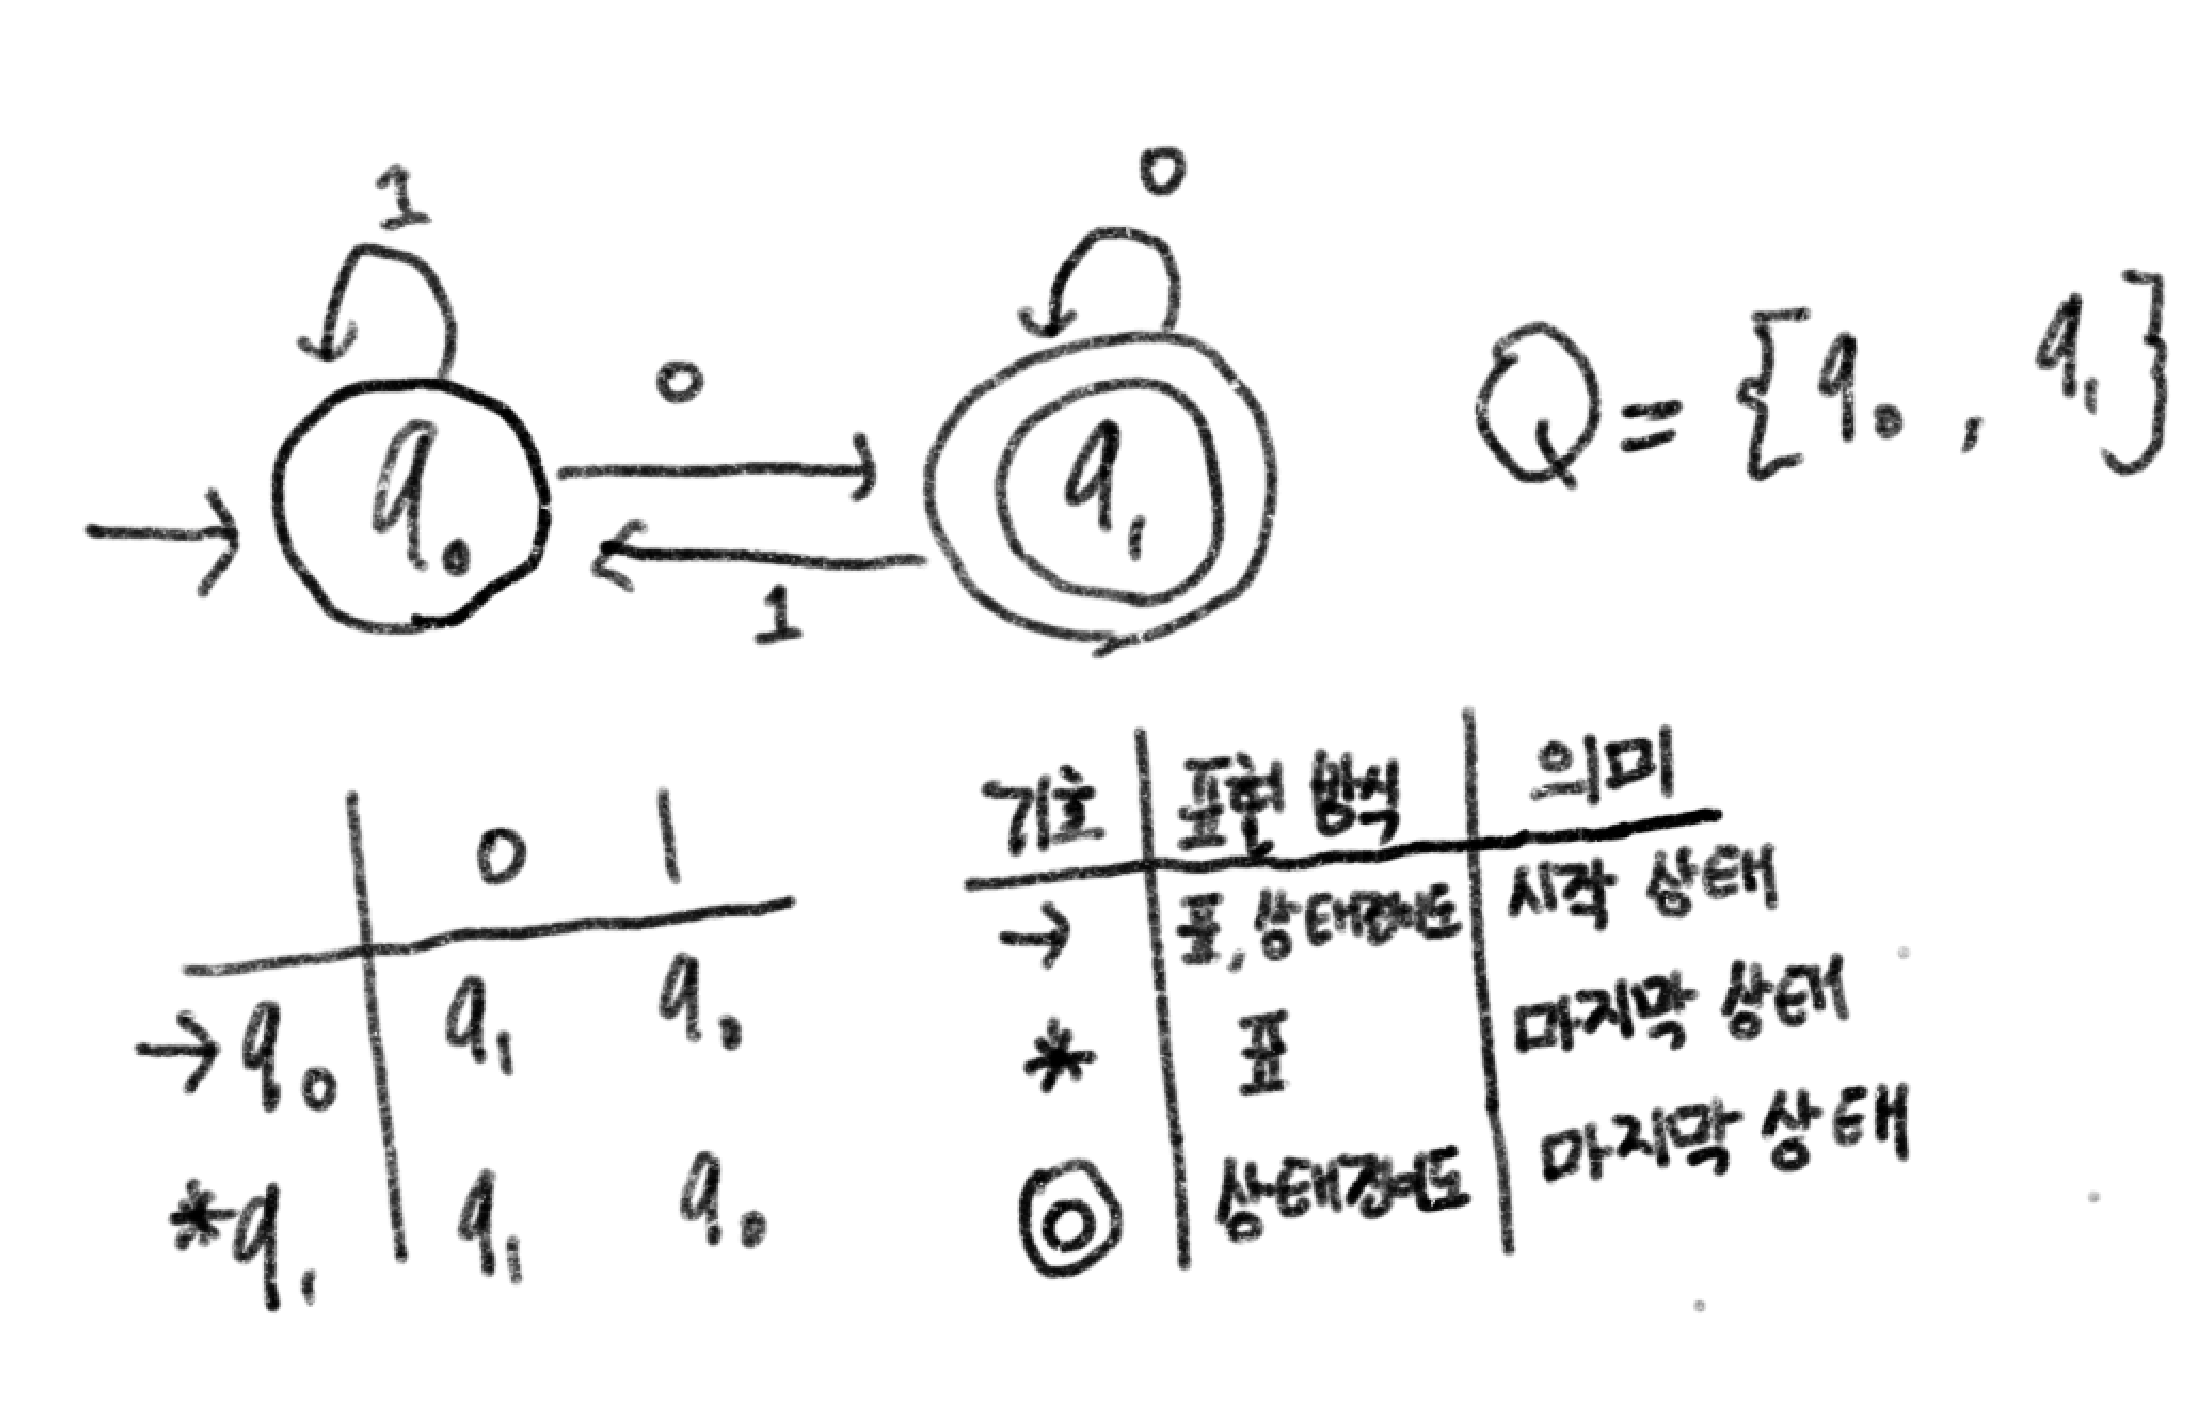 1
0
0
q₀
q₁
1
Q = {q₀, q₁}
0 1
→ q₀ q₁ q₀
* q₁ q₁ q₀
기호 표현 방식 의미
→ 표, 상태전이도 시작 상태
* 표 마지막 상태
◎ 상태전이도 마지막 상태